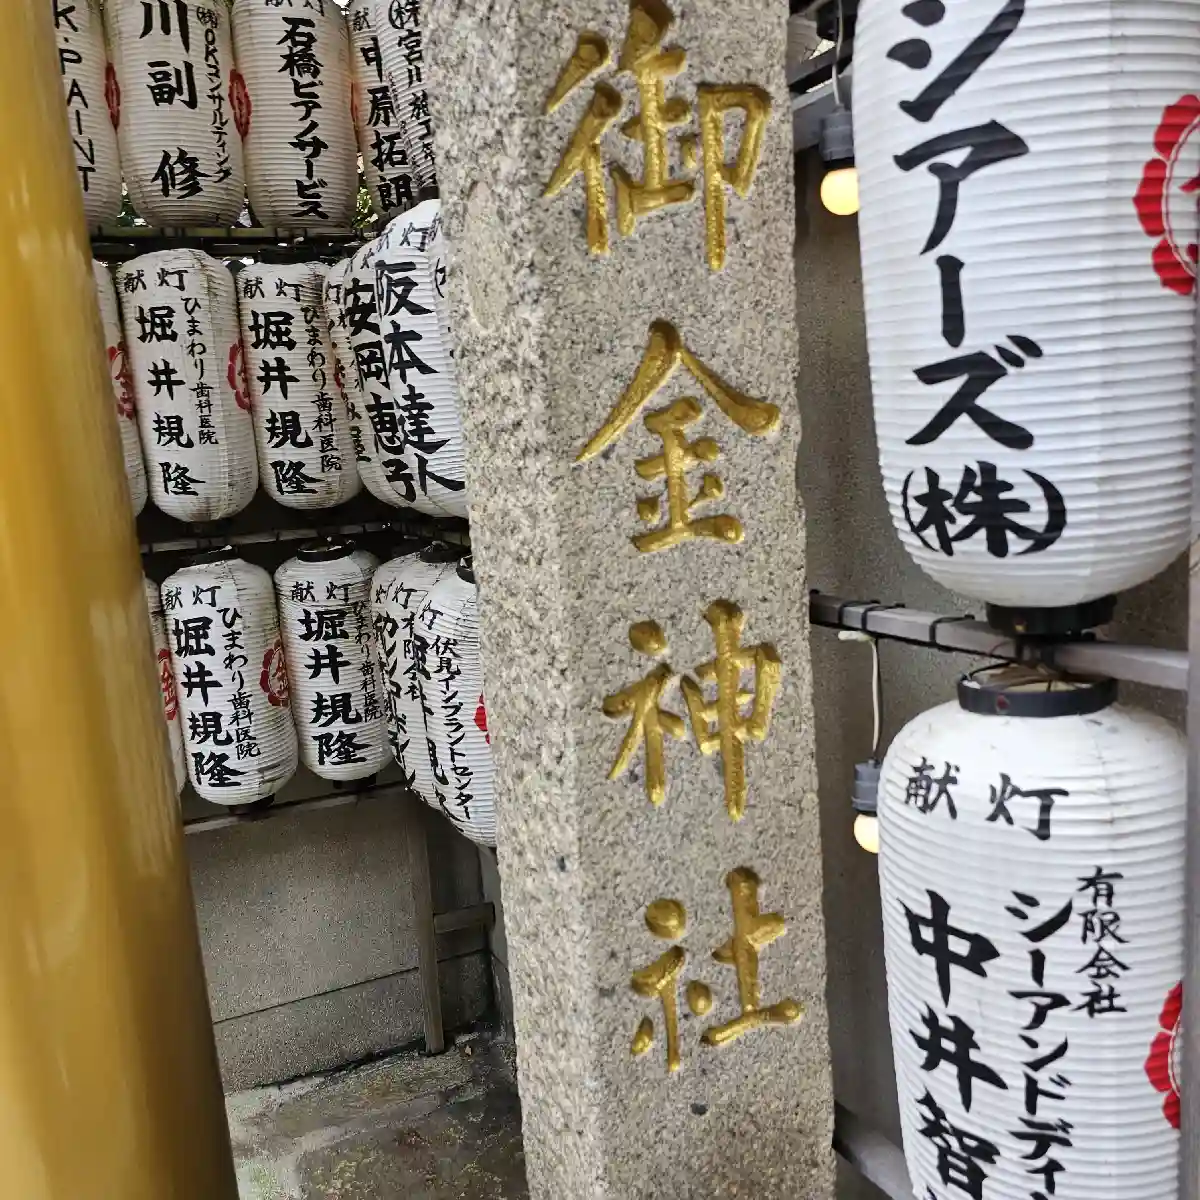 御金神社
K-PAINT
川副 修
㈱OKコンサルティング
献灯
石橋ピアノサービス
献
㈱宮川
原拓朗
献灯
ひまわり歯科医院
堀井規隆
献灯
ひまわり歯科医院
堀井規隆
灯
阪本達
安岡恵子
献灯
ひまわり歯科医院
堀井規隆
献灯
ひまわり歯科医院
堀井規隆
献灯
灯
伏見インプラントセンター
シアーズ㈱
献灯
有限会社
シーアンドディ
中井智